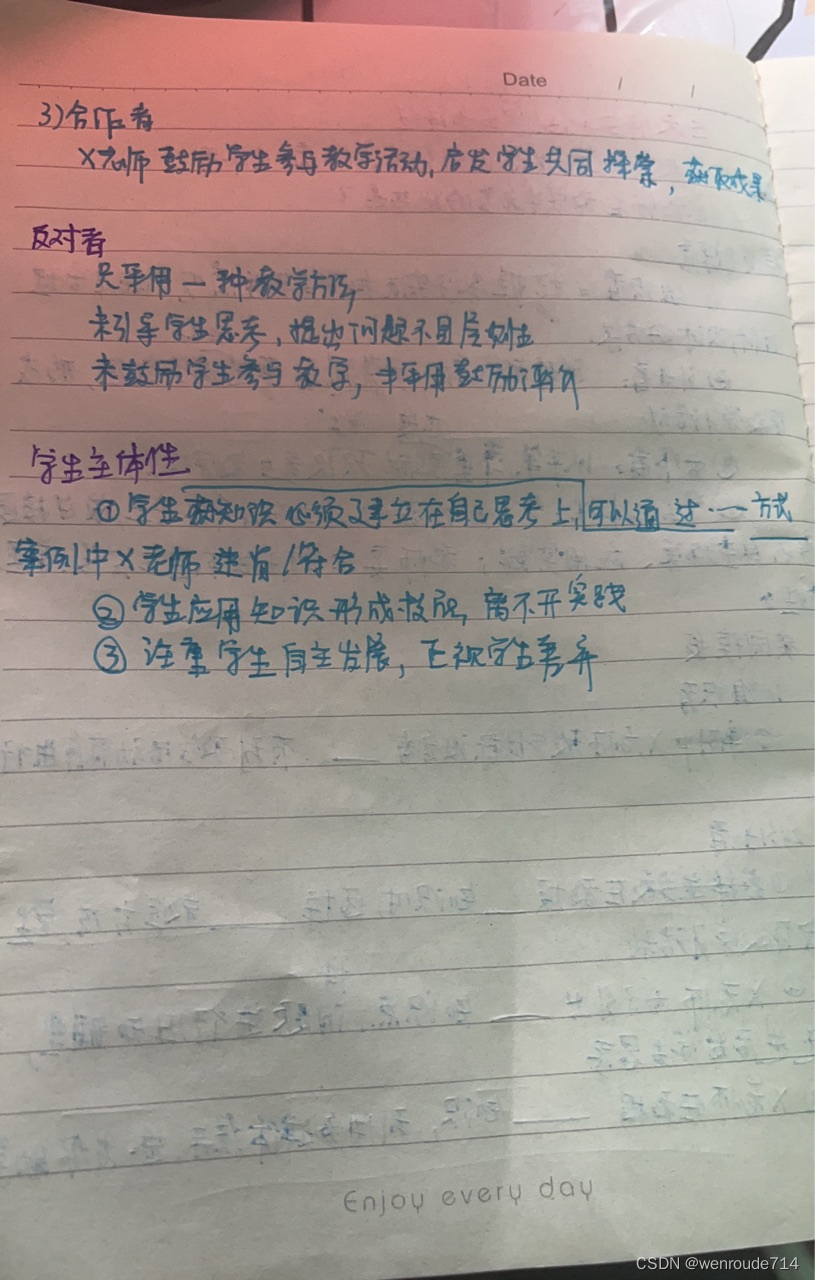 Date / /
3)合作者
X老师鼓励学生参与教学活动,启发学生共同探索,获取成果
反对者
只采用一种教学方法
未引导学生思考,提出问题不具启发性
未鼓励学生参与教学,未采用鼓励评价
学生主体性
①学生获知识必须建立在自己思考上,可以通过……方式
案例中X老师违背/符合
②学生应用知识形成技能,离不开实践
③注重学生自主发展,正视学生差异
Enjoy every day
CSDN @wenroude714